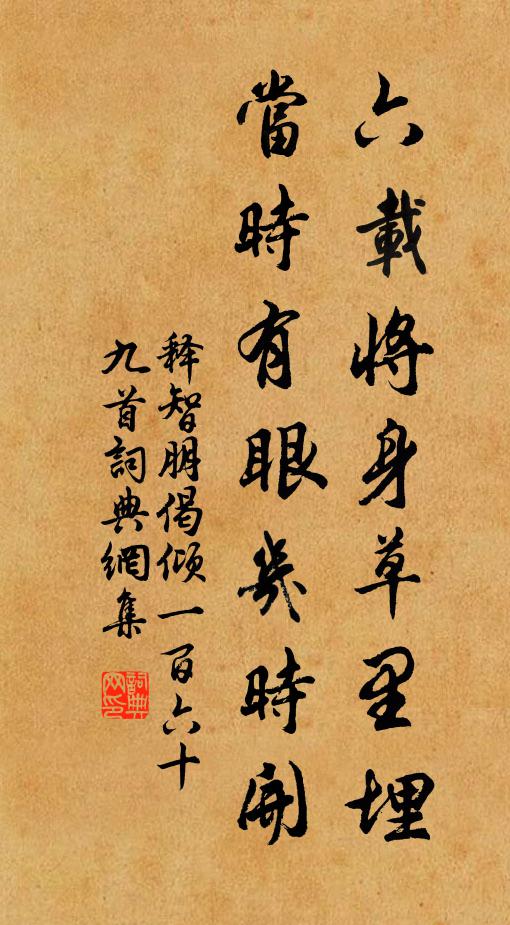 六載將身草里埋
當時有眼幾時開
釋智朋偈傾一百六十
九首詞典網集
詞典
网印